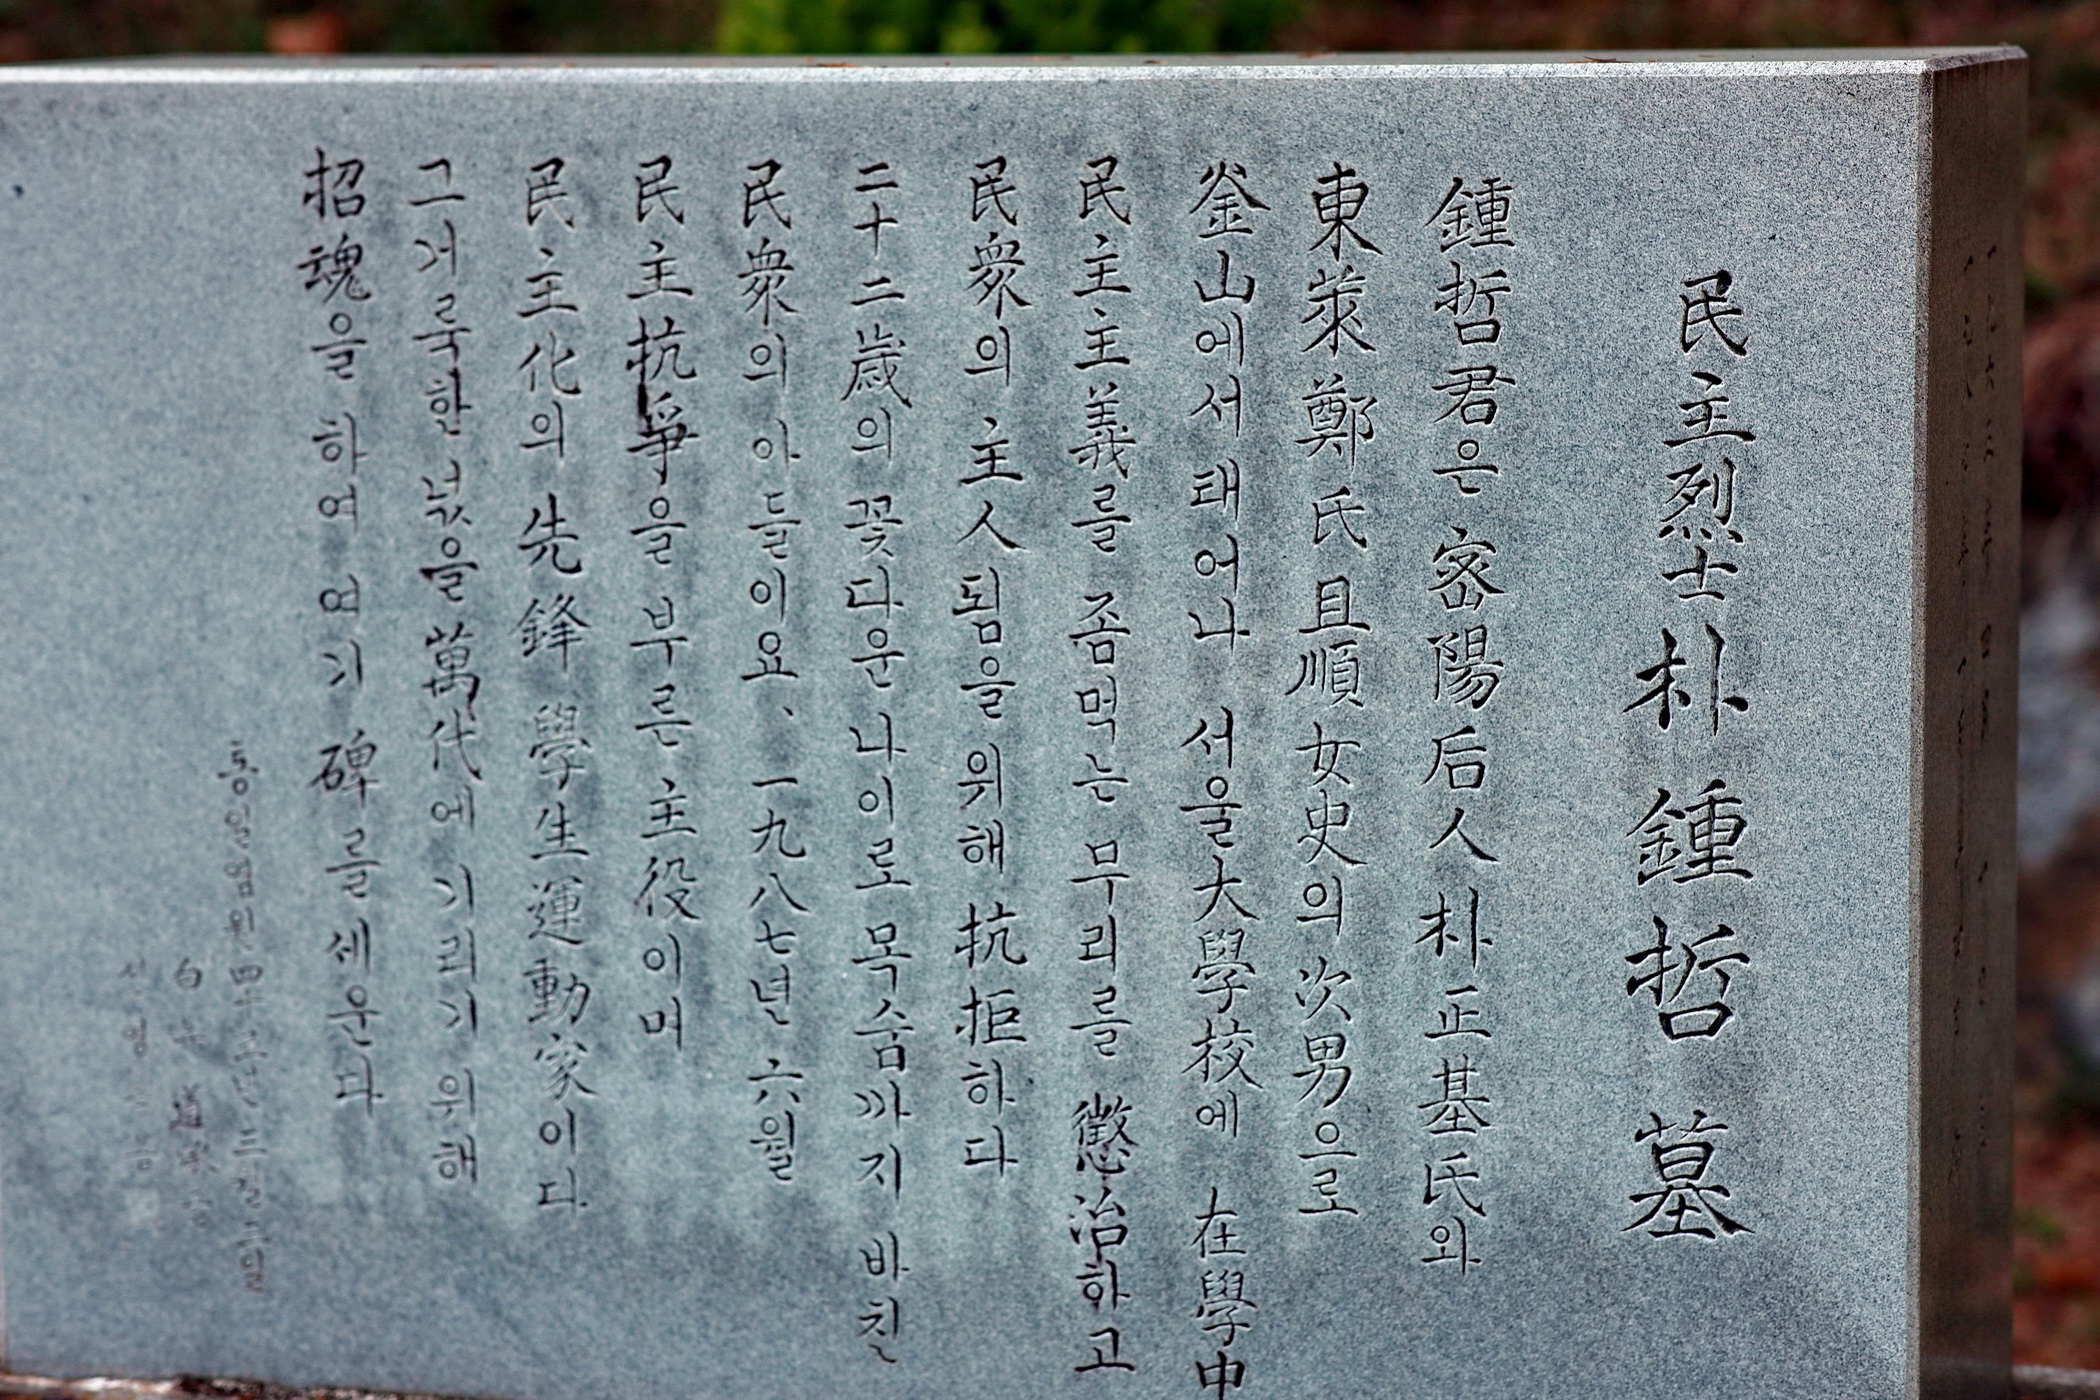 民主烈士 朴鍾哲 墓
鍾哲君은 密陽后人 朴正基氏와
東萊鄭氏 且順女史의 次男으로
釜山에서 태어나 서울大學校에 在學中
民主主義를 좀먹는 무리를 懲治하고
民衆의 主人됨을 위해 抗拒하다
二十二歲의 꽃다운 나이로 목숨까지 바친
民衆의 아들이요、一九八七년 六월
民主抗爭을 부른 主役이며
民主化의 先鋒 學生運動家이다
그거룩한 넋을 萬代에 기리기 위해
招魂을 하여 여기 碑를 세운다
통일염원 四
白